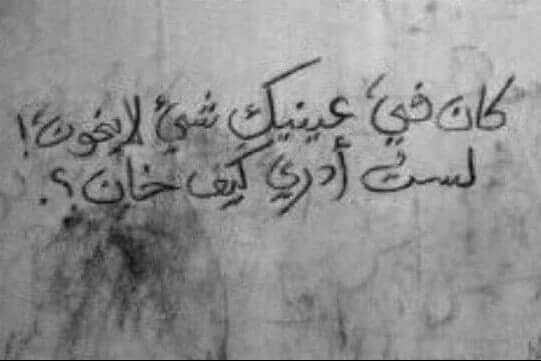 كان في عينيك شيئ لا يخون!
لست أدري كيف خان؟.